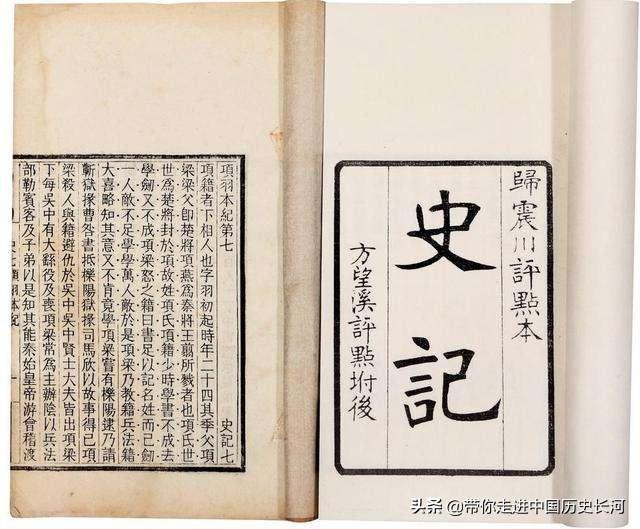 歸震川評點本
史記
方望溪評點坿後
項羽本紀第七 史記七
項籍者下相人也字羽初起時年二十四其季父項
梁梁父即楚將項燕為秦將王翦所戮者也項氏世
世為楚將封於項故姓項氏項籍少時學書不成去
學劍又不成項梁怒之籍曰書足以記名姓而已劍
一人敵不足學學萬人敵於是項梁乃教籍兵法籍
大喜略知其意又不肯竟學項梁嘗有櫟陽逮乃請
蘄獄掾曹咎書抵櫟陽獄掾司馬欣以故事得已項
梁殺人與籍避仇於吳中吳中賢士大夫皆出項梁
下每吳中有大繇役及喪項梁常為主辦陰以兵法
部勒賓客及子弟以是知其能秦始皇帝游會稽渡
头条 @带你走进中国历史长河